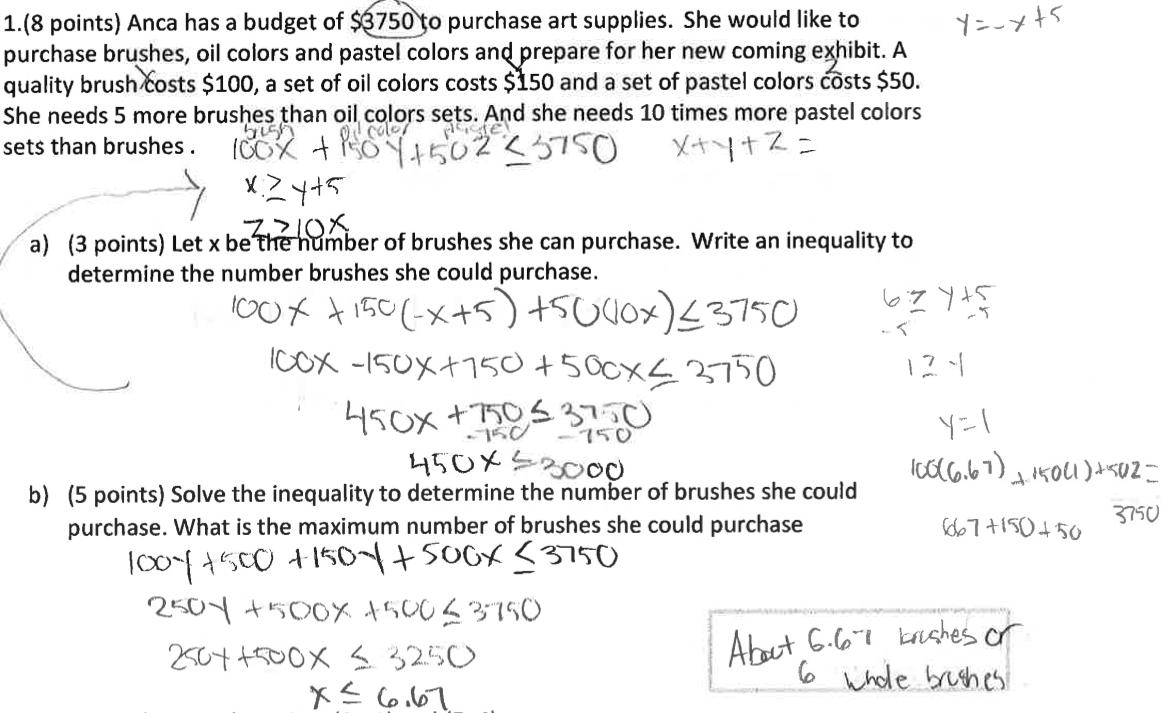 1.(8 points) Anca has a budget of $3750 to purchase art supplies. She would like to
y=-x+5
purchase brushes, oil colors and pastel colors and prepare for her new coming exhibit. A
quality brush costs $100, a set of oil colors costs $150 and a set of pastel colors costs $50.
x y z
She needs 5 more brushes than oil colors sets. And she needs 10 times more pastel colors
sets than brushes .
brush oil color pastel
100x + 150y+50z ≤3750
x+y+z =
x≥y+5
z≥10x
a) (3 points) Let x be the number of brushes she can purchase. Write an inequality to
determine the number brushes she could purchase.
100x + 150(-x+5) +50(10x)≤3750
6≥ y+5
-5 -5
100x -150x+750 +500x≤ 3750
1≥y
450x +750≤ 3750
-750 -750
y=1
450x ≤3000
100(6.67) + 150(1)+50z=
3750
b) (5 points) Solve the inequality to determine the number of brushes she could
purchase. What is the maximum number of brushes she could purchase
667+150+50
100y +500 +150y+500x ≤3750
250y +500x +500≤3750
250y+500x ≤ 3250
x≤ 6.67
About 6.67 brushes or
6 whole brushes